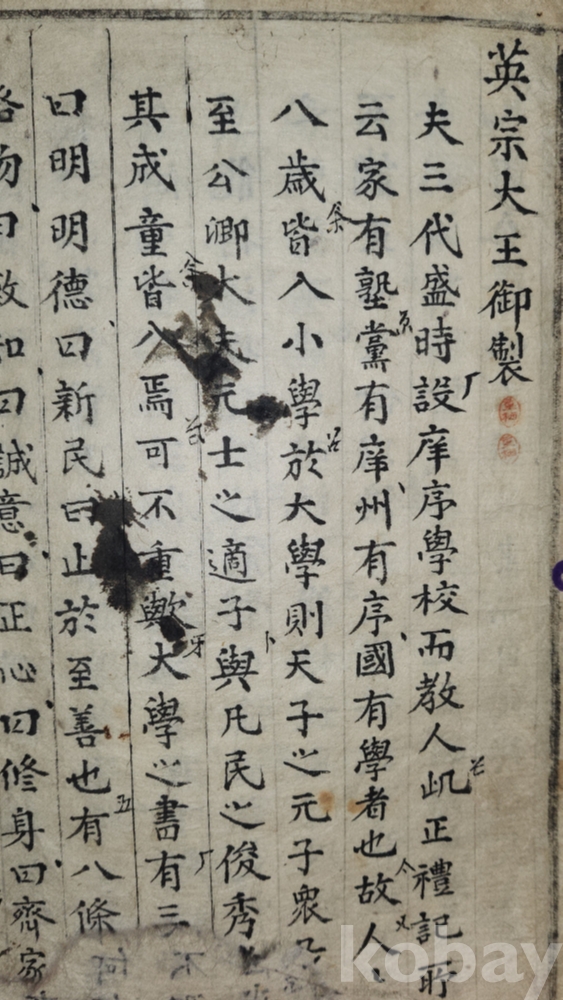 英宗大王御製
夫三代盛時設庠序學校而教人此正禮記所
云家有塾黨有庠州有序國有學者也故人
八歲皆入小學於大學則天子之元子衆子
至公卿大夫元士之適子與凡民之俊秀
其成童皆入焉可不重歟大學之書有三
曰明明德曰新民曰止於至善也有八條
格物曰致知曰誠意曰正心曰修身曰齊家
kobay